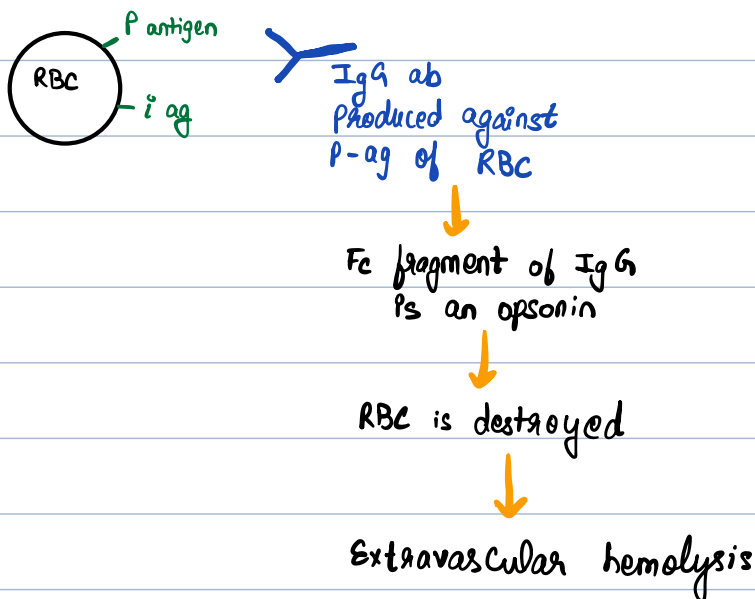 P antigen
RBC
i ag
IgG ab
Produced against
P-ag of RBC
Fc fragment of IgG
is an opsonin
RBC is destroyed
Extravascular hemolysis